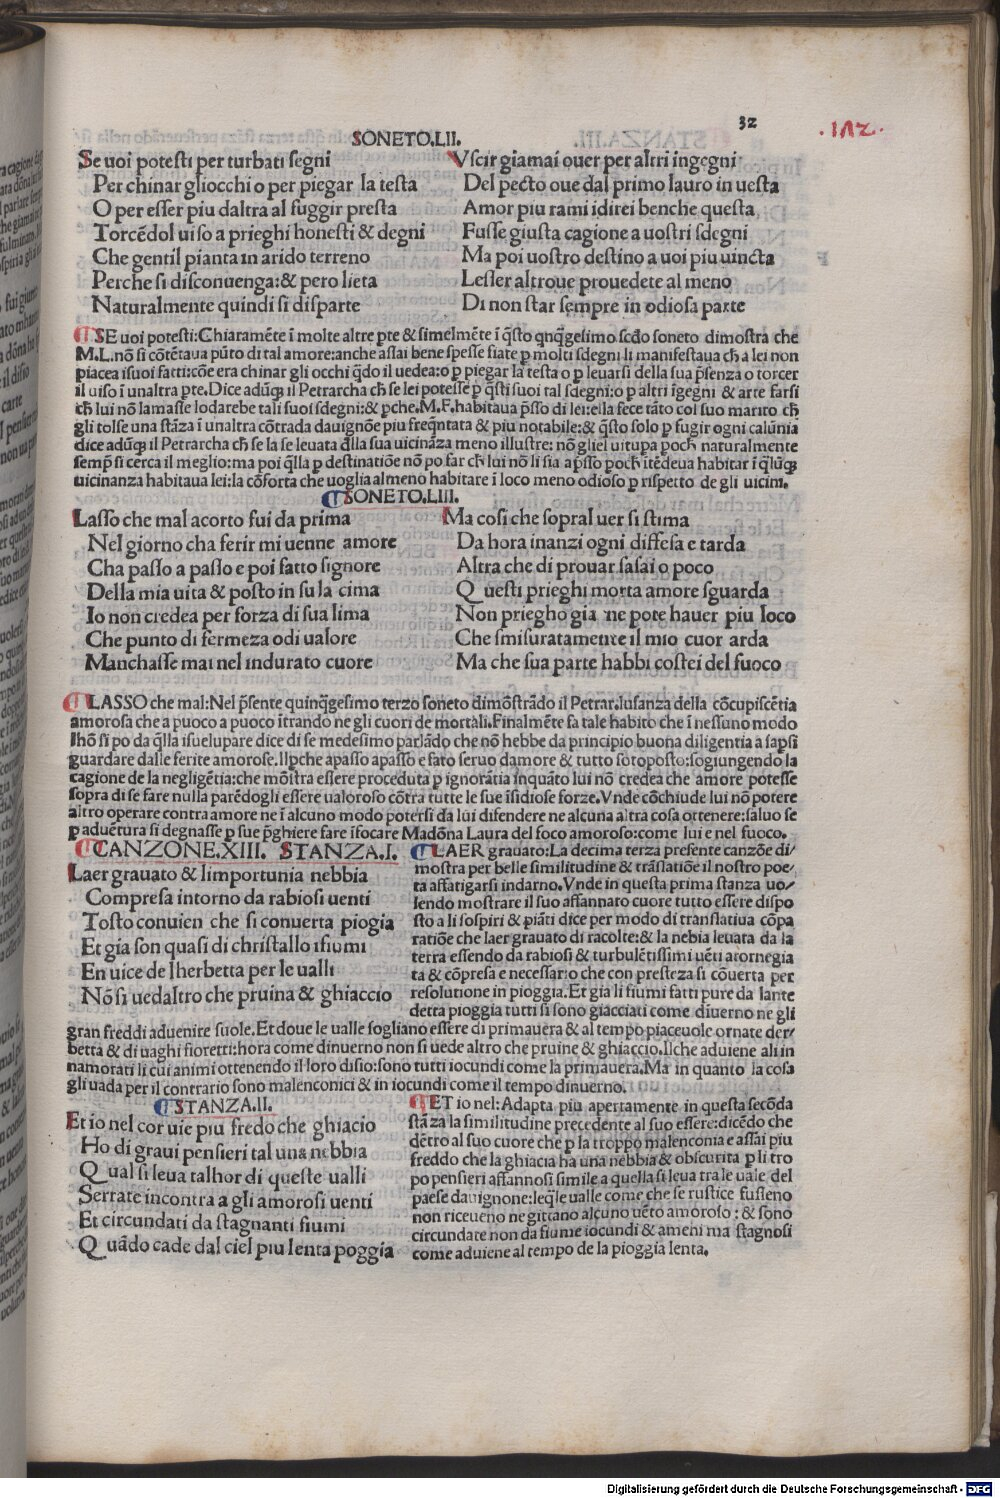 32
.112.
SONETO.LII.
Se uoi potesti per turbati segni
Per chinar gliocchi o per piegar la testa
O per esser piu daltra al fuggir presta
Torcẽdol uiso a prieghi honesti & degni
Che gentil pianta in arido terreno
Perche si disconuenga:& pero lieta
Naturalmente quindi si disparte
Vscir giamai ouer per altri ingegni
Del pecto oue dal primo lauro in uesta
Amor piu rami idirei benche questa
Fusse giusta cagione a uostri sdegni
Ma poi uostro destino a uoi piu uincta
Lesser altroue prouedete al meno
Di non star sempre in odiosa parte
SE uoi potesti:Chiaramẽte ĩ molte altre pte & simelmẽte ĩ q̃sto qnq̃gesimo scd̃o soneto dimostra che
M.L.nõ si cõtẽtaua pũto di tal amore:anche assai bene spesse fiate p molti sdegni li manifestaua ch̃ a lei non
piacea isuoi fatti:cõe era chinar gli occhi q̃do il uedea:o p piegar la testa o p leuarsi della sua p̃senza o torcer
il uiso ĩ unaltra pte.Dice adũq; il Petrarcha ch̃ se lei potesse p q̃sti suoi tal sdegni:o p altri ĩgegni & arte farsi
ch̃ lui nõ lamasse lodarebe tali suoi sdegni:& pche.M.F.habitaua p̃sso di lei:ella fece tãto col suo marito ch̃
gli tolse una stãza ĩ unaltra cõtrada dauignõe piu freq̃ntata & piu notabile:& q̃sto solo p fugir ogni calũnia
dice adũq; il Petrarcha ch̃ se la se leuata d̃lla sua uicinãza meno illustre: nõ gliel uitupa poch̃ naturalmente
semp̃ si cerca il meglio:ma poi q̃lla p destinatiõe nõ po far ch̃ lui nõ li sia ap̃sso poch̃ itẽdeua habitar ĩ q̃lũq;
uicinanza habitaua lei:la cõforta che uoglia almeno habitare ĩ loco meno odioso p rispetto de gli uicini.
SONETO.LIII.
Lasso che mal acorto fui da prima
Nel giorno cha ferir mi uenne amore
Cha passo a passo e poi fatto signore
Della mia uita & posto in su la cima
Io non credea per forza di sua lima
Che punto di fermeza odi ualore
Manchasse mai nel indurato cuore
Ma cosi che sopral uer si stima
Da hora inanzi ogni diffesa e tarda
Altra che di prouar sasai o poco
Q uesti prieghi morta amore sguarda
Non priegho gia ne pote hauer piu loco
Che smisuratamente il mio cuor arda
Ma che sua parte habbi costei del fuoco
LASSO che mal:Nel p̃sente quinq̃gesimo terzo soneto dimõstrãdo il Petrar.lusanza della cõcupiscẽtia
amorosa che a puoco a puoco ĩtrando ne gli cuori de mortali.Finalmẽte fa tale habito che ĩ nessuno modo
lhõ si po da q̃lla isuelupare dice di se medesimo parlãdo che nõ hebbe da principio buona diligentia a sapsi
guardare dalle ferite amorose.Ilpche apasso apasso e fato seruo damore & tutto sotoposto:sogiungendo la
cagione de la negligẽtia:che mõstra essere proceduta p ignorãtia inquãto lui nõ credea che amore potesse
sopra di se fare nulla parẽdogli essere ualoroso cõtra tutte le sue ĩsidiose forze.Vnde cõchiude lui nõ potere
altro operare contra amore ne ĩ alcuno modo potersi da lui difendere ne alcuna altra cosa ottenere:saluo se
p aduẽtura si degnasse p sue p̃ghiere fare ĩfocare Madõna Laura del foco amoroso:come lui e nel fuoco.
CANZONE.XIII. STANZA.I.
Laer grauato & limportunia nebbia
Compresa intorno da rabiosi uenti
Tosto conuien che si conuerta piogia
Et gia son quasi di christallo ifiumi
En uice de lherbetta per le ualli
Nõ si uedaltro che pruina & ghiaccio
LAER grauato:La decima terza presente canzõe di/
mostra per belle similitudine & trãslatiõe il nostro poe/
ta affatigarsi indarno.Vnde in questa prima stanza uo/
lendo mostrare il suo affannato cuore tutto essere dispo
sto a li sospiri & piãti dice per modo di translatiua cõpa
ratiõe che laer grauato di racolte:& la nebia leuata da la
terra essendo da rabiosi & turbulẽtissimi uẽti atornegia
ta & cõpresa e necessario che con presteza si cõuerta per
resolutione in pioggia.Et gia li fiumi fatti pure da lante
detta pioggia tutti si sono giacciati come diuerno ne gli
gran freddi aduenire suole.Et doue le ualle sogliano essere di primauera & al tempo piaceuole ornate der/
betta & di uaghi fioretti:hora come dinuerno non si uede altro che pruine & ghiaccio.Ilche aduiene ali in
namorati li cui animi ottenendo il loro disio:sono tutti iocundi come la primauera.Ma in quanto la cosa
gli uada per il contrario sono malenconici & in iocundi come il tempo dinuerno.
STANZA.II.
Et io nel cor uie piu fredo che ghiacio
Ho di graui pensieri tal una nebbia
Q ual si leua talhor di queste ualli
Serrate incontra a gli amorosi uenti
Et circundati da stagnanti fiumi
Q uãdo cade dal ciel piu lenta poggia
ET io nel:Adapta piu apertamente in questa secõda
stãza la similitudine precedente al suo essere:dicẽdo che
dẽtro al suo cuore che p la troppo malenconia e assai piu
freddo che la ghiacia ha una nebbia & obscurita p li tro
po pensieri affannosi simile a quella si leua tra le uale del
paese dauignone:leq̃le ualle come che se rustice fusseno
non riceueno ne gittano alcuno uẽto amoroso : & sono
circundate non da fiume iocundi & ameni ma stagnosi
come aduiene al tempo de la pioggia lenta.
Digitalisierung gefördert durch die Deutsche Forschungsgemeinschaft - DFG